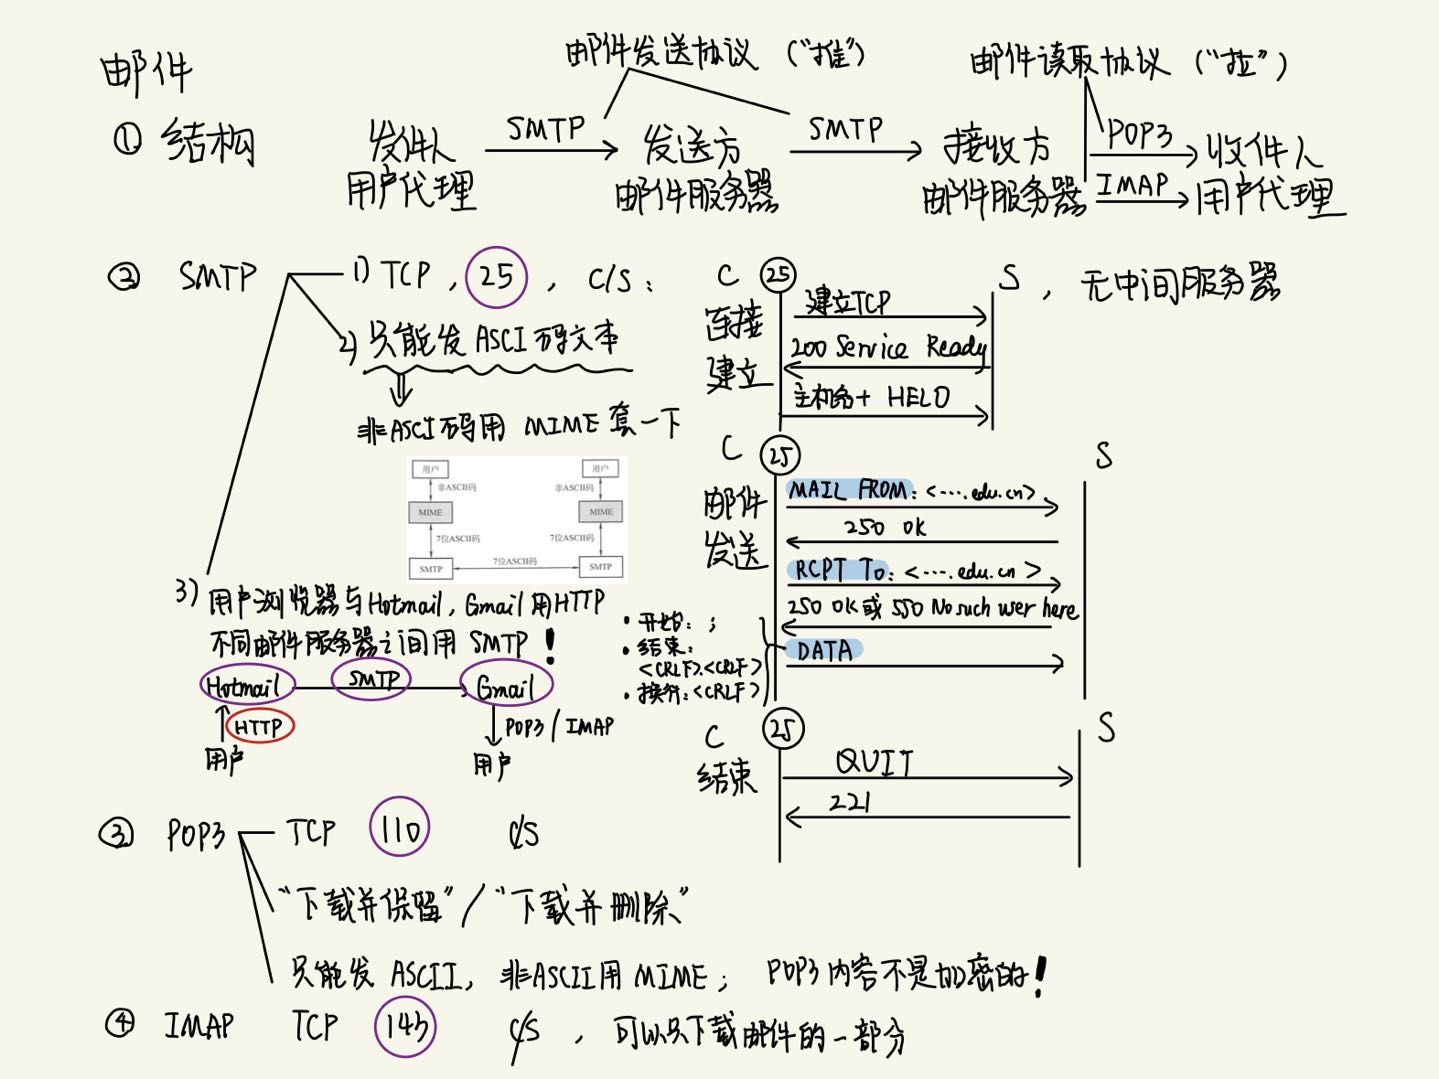 邮件
邮件发送协议 （“推”）
邮件读取协议 （“拉”）
① 结构
发件人
用户代理
SMTP
发送方
邮件服务器
SMTP
接收方
邮件服务器
POP3
IMAP
收件人
用户代理
② SMTP
1) TCP ， 25 ， C/S ：
2) 只能发 ASCI 码文本
非ASCI码用 MIME 套一下
用户
用户
非ASCII码
非ASCII码
MIME
MIME
7位ASCII码
7位ASCII码
SMTP
7位ASCII码
SMTP
3) 用户浏览器与Hotmail，Gmail 用HTTP
不同邮件服务器之间用 SMTP ！
Hotmail
SMTP
Gmail
HTTP
POP3 / IMAP
用户
用户
C 25 S ， 无中间服务器
连接
建立
建立TCP
200 Service Ready
主机名+ HELO
C 25 S
邮件
发送
MAIL FROM：<....edu.cn>
250 OK
RCPT To：<....edu.cn>
250 OK 或 550 No such user here
DATA
• 开始：；
• 结束：
<CRLF>.<CRLF>
• 换行：<CRLF>
C 25 S
结束
QUIT
221
③ POP3 TCP 110 C/S
“下载并保留” / “下载并删除”
只能发 ASCII，非ASCII用 MIME； POP3内容不是加密的！
④ IMAP TCP 143 C/S ， 可以只下载邮件的一部分